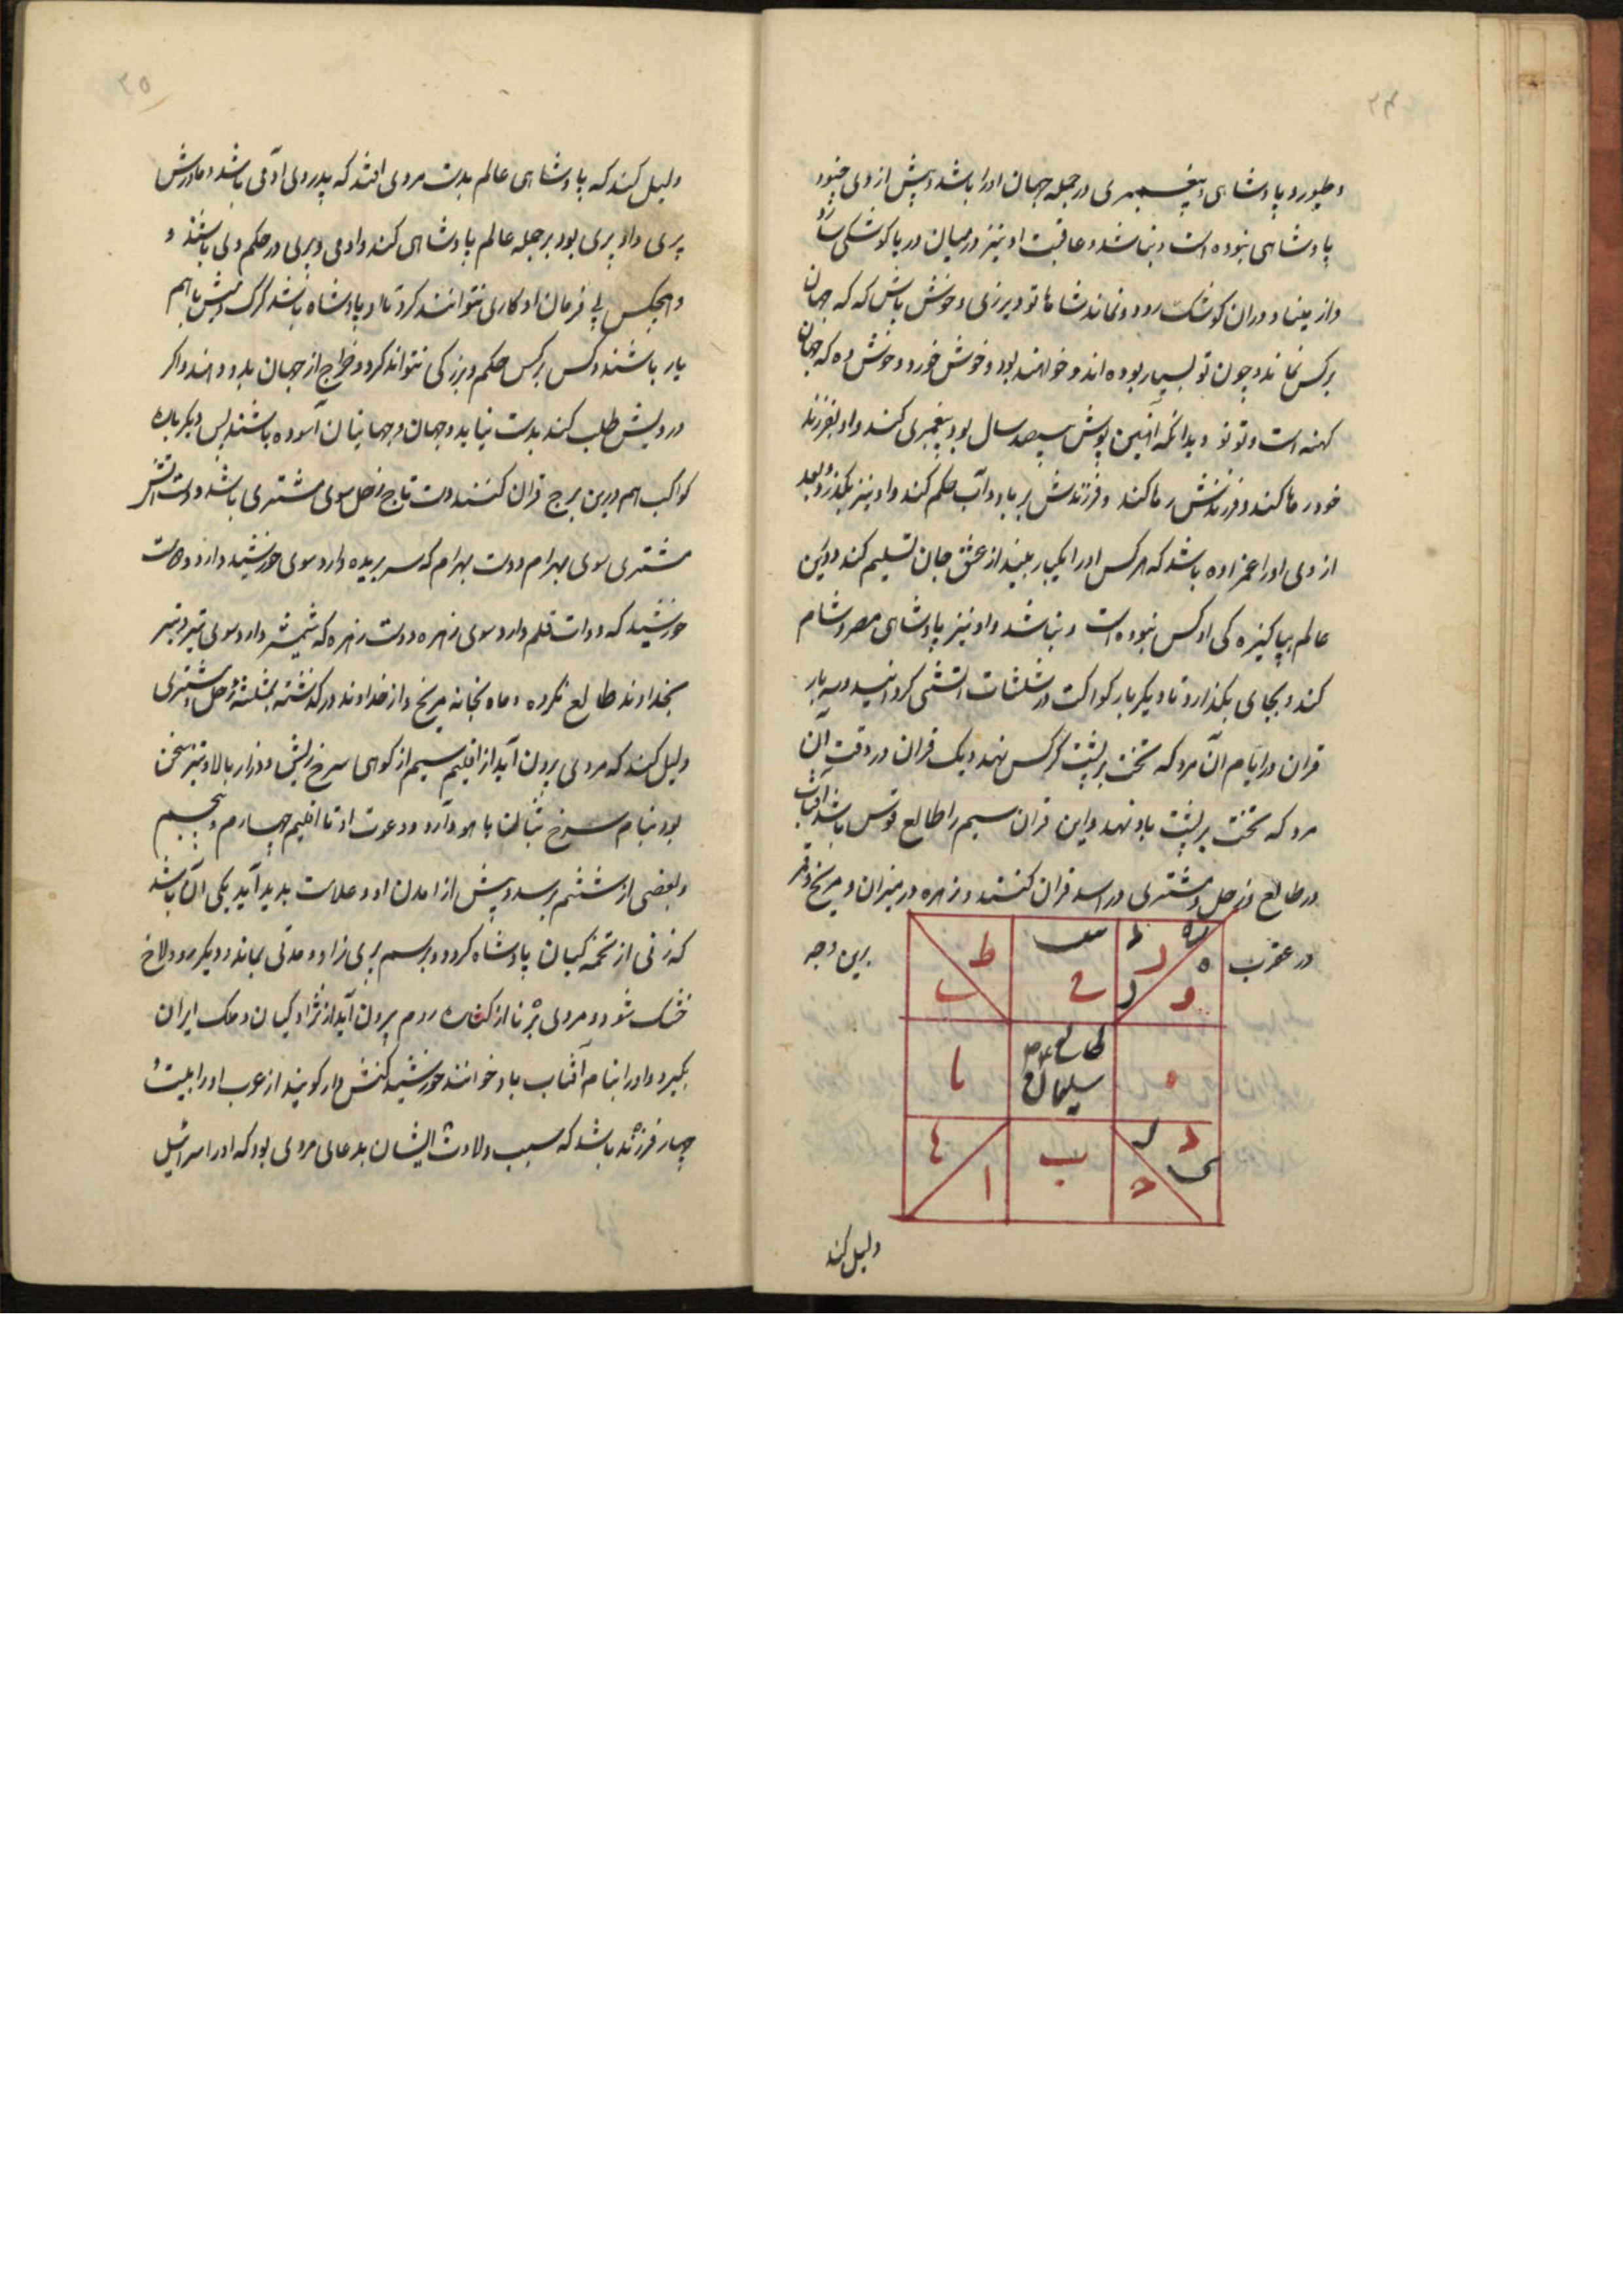 ۳۴
و طیور و پادشاهی و پیغمبری در جمله جهان او را باشد و پیش از وی چنو
پادشاهی نبوده است و نباشد و عاقبت او نیز در میان دریا کوشکی سازد
و از مینا و در آن کوشک رود و نماند شاها تو دیر زی و خوش باش که که جهان
بر کس نماند و چون تو بسیار بوده اند و خواهند بود و خوش خور و خوش ده که جهان
کهنه است و تو نو و بدانکه سیصد سال بود پیغمبری کند و او بفرزند
خود رها کند و فرزندش رها کند و فرزندش بر باد و آب حکم کند و او نیز بگذرد و بعد
از وی او را عمزاده باشد که هر کس او را یکبار بیند از عشق جان تسلیم کند و درین
عالم بپاکیزه کی او کس نبوده است و نباشد و او نیز پادشاهی مصر و شام
کند و بجای بگذارد تا دیگر بار کواکب در مثلثات آتشی کرد آیند و سه بار
قران در ایام آن مرد که تخت بر پشت کرکس نهد و یک قران در وقت آن
مرد که تخت بر پشت باد نهد و این قران سیم را طالع قوس باشد و آفتاب
در طالع و زحل و مشتری در اسد قران کنند و زهره در میزان و مریخ و قمر
در عقرب
برین وجه
طالع
سلیمان
دلیل کند
۳۵
دلیل کند که پادشاهی عالم بدست مردی افتد که پدر وی آدمی باشد و مادرش
پری و او پری بود بر جمله عالم پادشاهی کند و آدمی و پری در حکم وی باشند و
و هیچکس بی فرمان او کاری نتوانند کرد تا او پادشاه باشد کرک و میش باهم
یار باشند و کس بر کس حکم و بزرکی نتواند کرد و خراج از جهان بدو دهند و اکر
درویش طلب کنند بدست نیاید و جهان و جهانیان آسوده باشند پس دیکر باره
کواکب هم درین برج قران کنند دست تاج زحل سوی مشتری باشد و دست
مشتری سوی بهرام و دست بهرام که سر بریده دارد سوی خورشید دارد و دست
خورشید که دوات قلم دارد سوی زهره و دست زهره که شمشیر دارد سوی تیر و تیر
بخداوند طالع کرده و ماه بخانه مریخ و از خداوند درکذشته بمثلثه زحل و مشتری
دلیل کند که مردی بیرون آید از اقلیم سیم از کوهی سرخ ریش و دراز بالا و تیز سخن
بود بنام سرخ و دعوت او تا اقلیم چهارم و پنجم
و بعضی از ششم برسد و پیش از آمدن او دو علامت پدید آید یکی آن باشد
که زنی از تخمه کیان پادشاه کردد و برسم پری زاد و مدتی بماند و دیکر رود
خشک شود و مردی برنا از کناره روم بیرون آید از نژاد کیان و ملک ایران
بکیرد و او را بنام آفتاب باد خوانند خورشید کنش دار کویند از عرب او را بیست و
چهار فرزند باشد که سبب ولادت ایشان بدعای مردی بود که او را اسرائیل